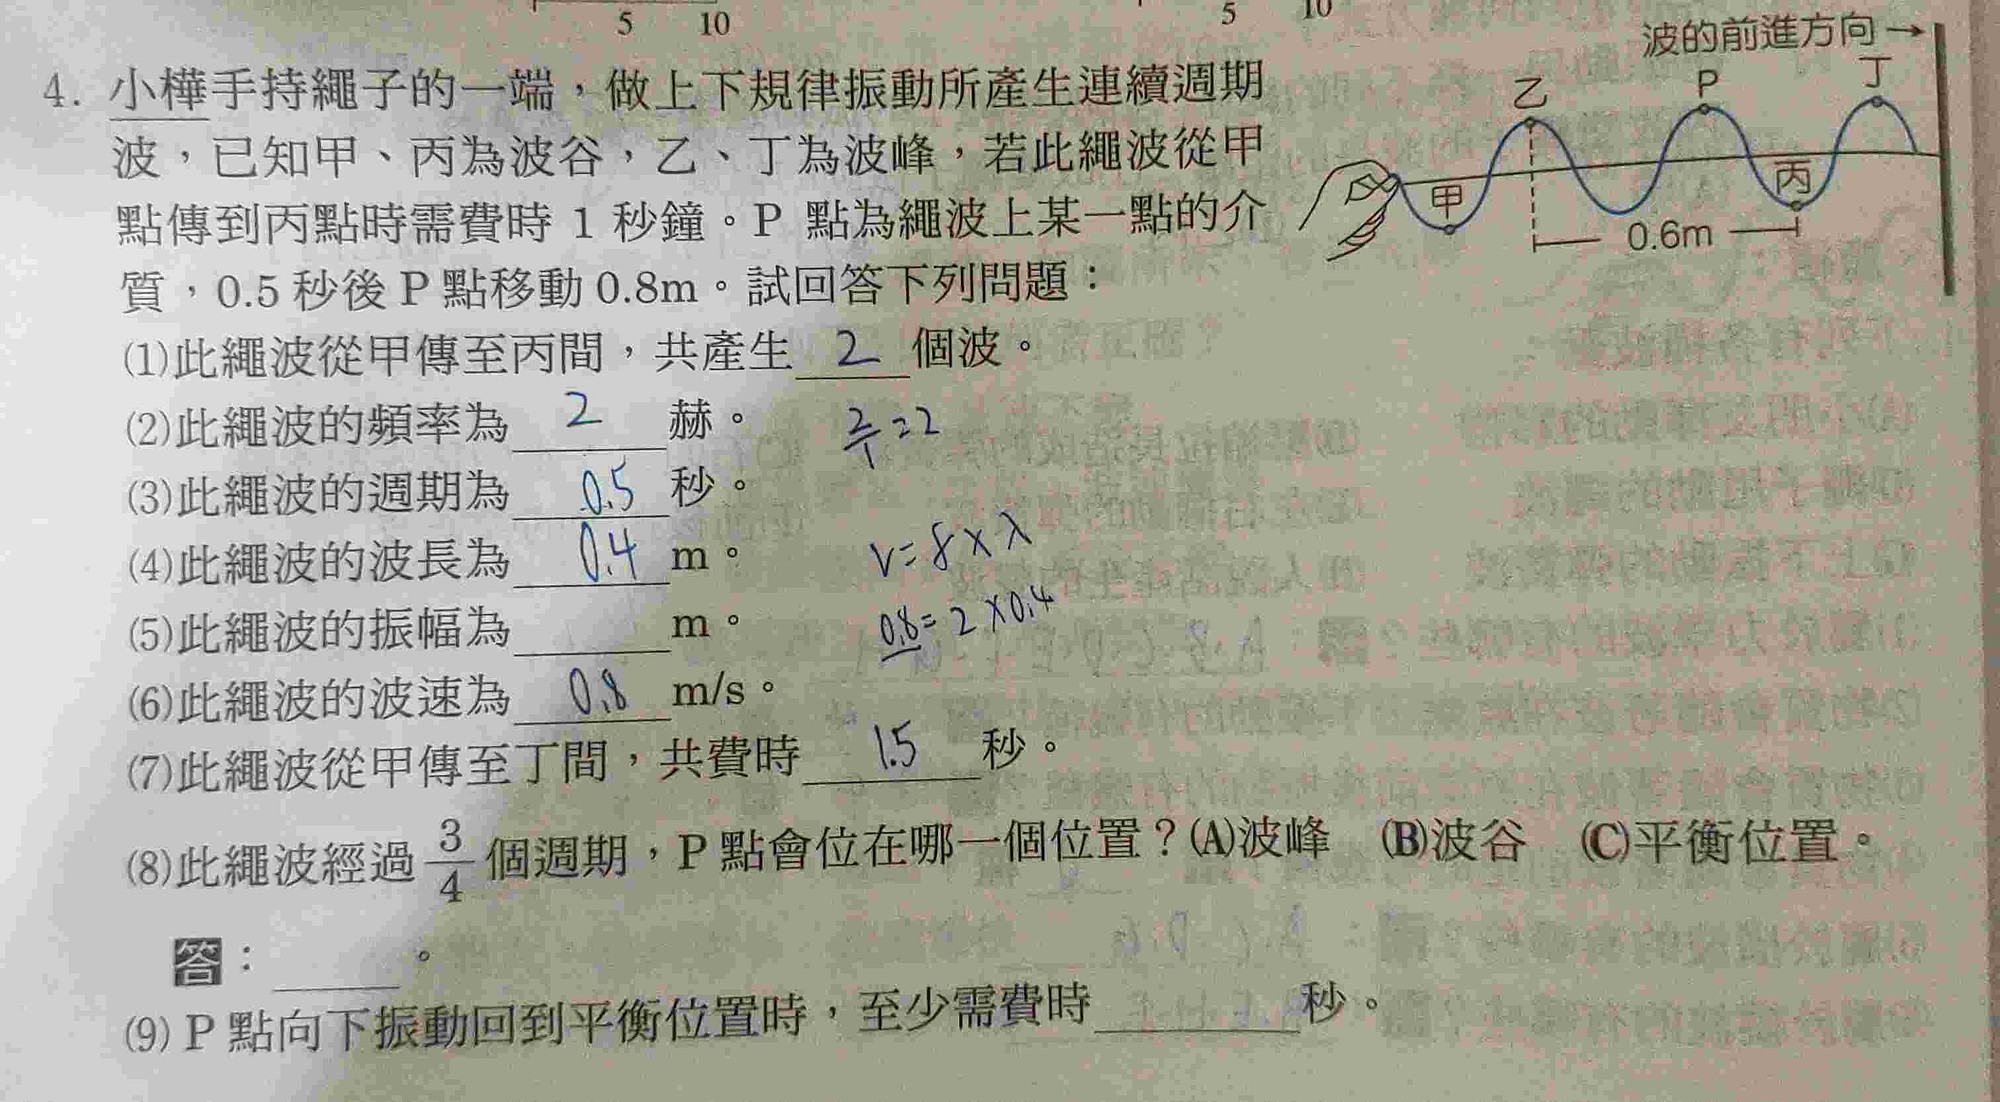 5 10
5 10
波的前進方向→
乙 P 丁
甲 丙
0.6m
4. 小樺手持繩子的一端，做上下規律振動所產生連續週期
波，已知甲、丙為波谷，乙、丁為波峰，若此繩波從甲
點傳到丙點時需費時 1 秒鐘。P 點為繩波上某一點的介
質，0.5 秒後 P 點移動 0.8m。試回答下列問題：
(1)此繩波從甲傳至丙間，共產生 2 個波。
(2)此繩波的頻率為 2 赫。 2/1=2
(3)此繩波的週期為 0.5 秒。
(4)此繩波的波長為 0.4 m。 v=f×λ
(5)此繩波的振幅為 m。 0.8=2×0.4
(6)此繩波的波速為 0.8 m/s。
(7)此繩波從甲傳至丁間，共費時 1.5 秒。
(8)此繩波經過 3/4 個週期，P 點會位在哪一個位置？(A)波峰 (B)波谷 (C)平衡位置。
答： 。
(9) P 點向下振動回到平衡位置時，至少需費時 秒。